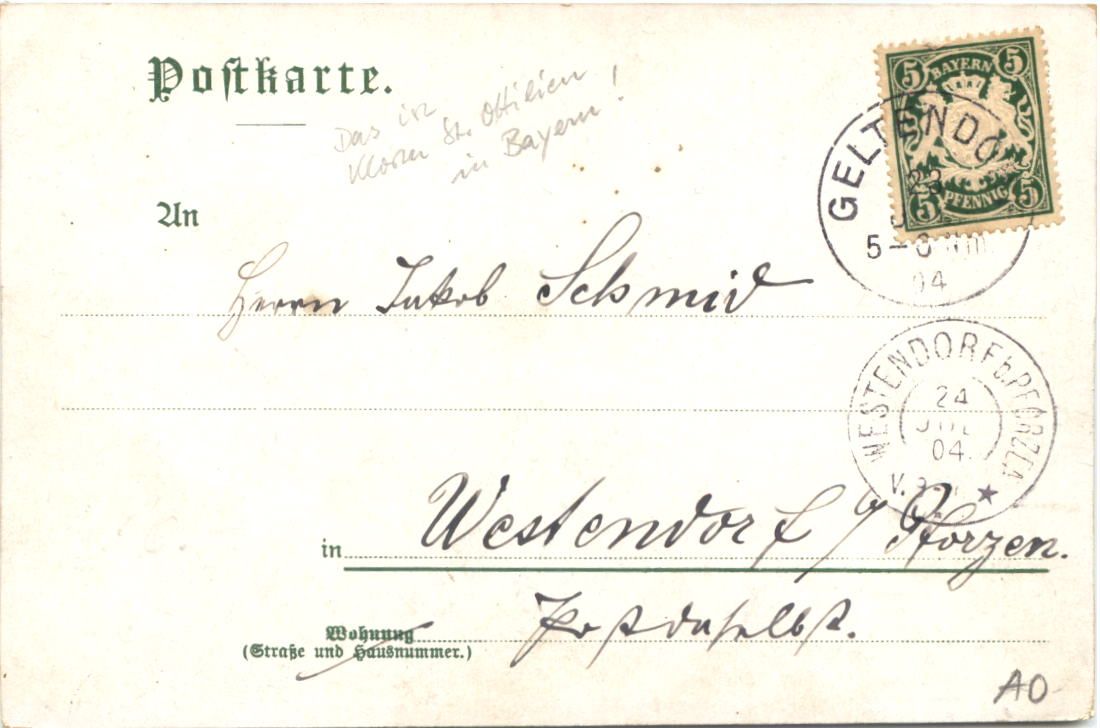 Postkarte.
Das ist
Kloster St. Ottilien
in Bayern!
5 BAYERN 5
5 PFENNIG 5
GELTENDO
23
5-6 Nm
04
An
Herrn Jakob Schmid
WESTENDORF b. PFORZEN
24
JUL
04
V.
in Westendorf b/ Pforzen.
Wohnung Post daselbst.
(Straße und Hausnummer.)
AO